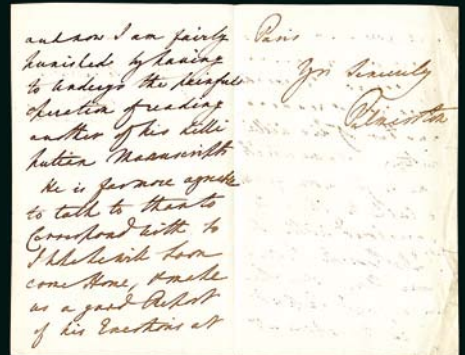 and now I am fairly
punished by having
to undergo the painful
operation of reading
another of his Lilli
putian Manuscripts
He is far more agreeable
to talk to than to
Correspond with so
I hope he will soon
come Home, & make
us a good Report
of his Exertions at
Paris
Yrs Sincerely
Palmerston